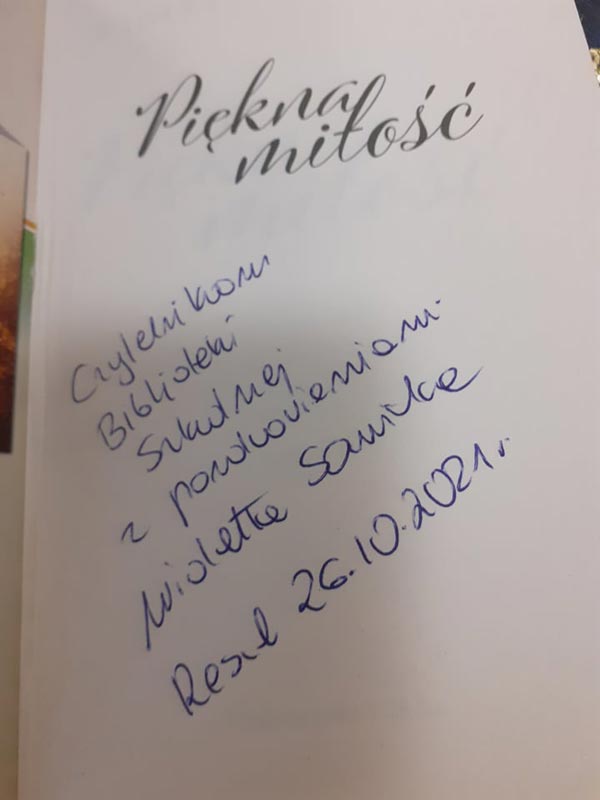 Piękna
miłość
Czytelnikom
Biblioteki
Szkolnej
z pozdrowieniami
Wioletta Sawicka
Resel 26.10.2021 r.